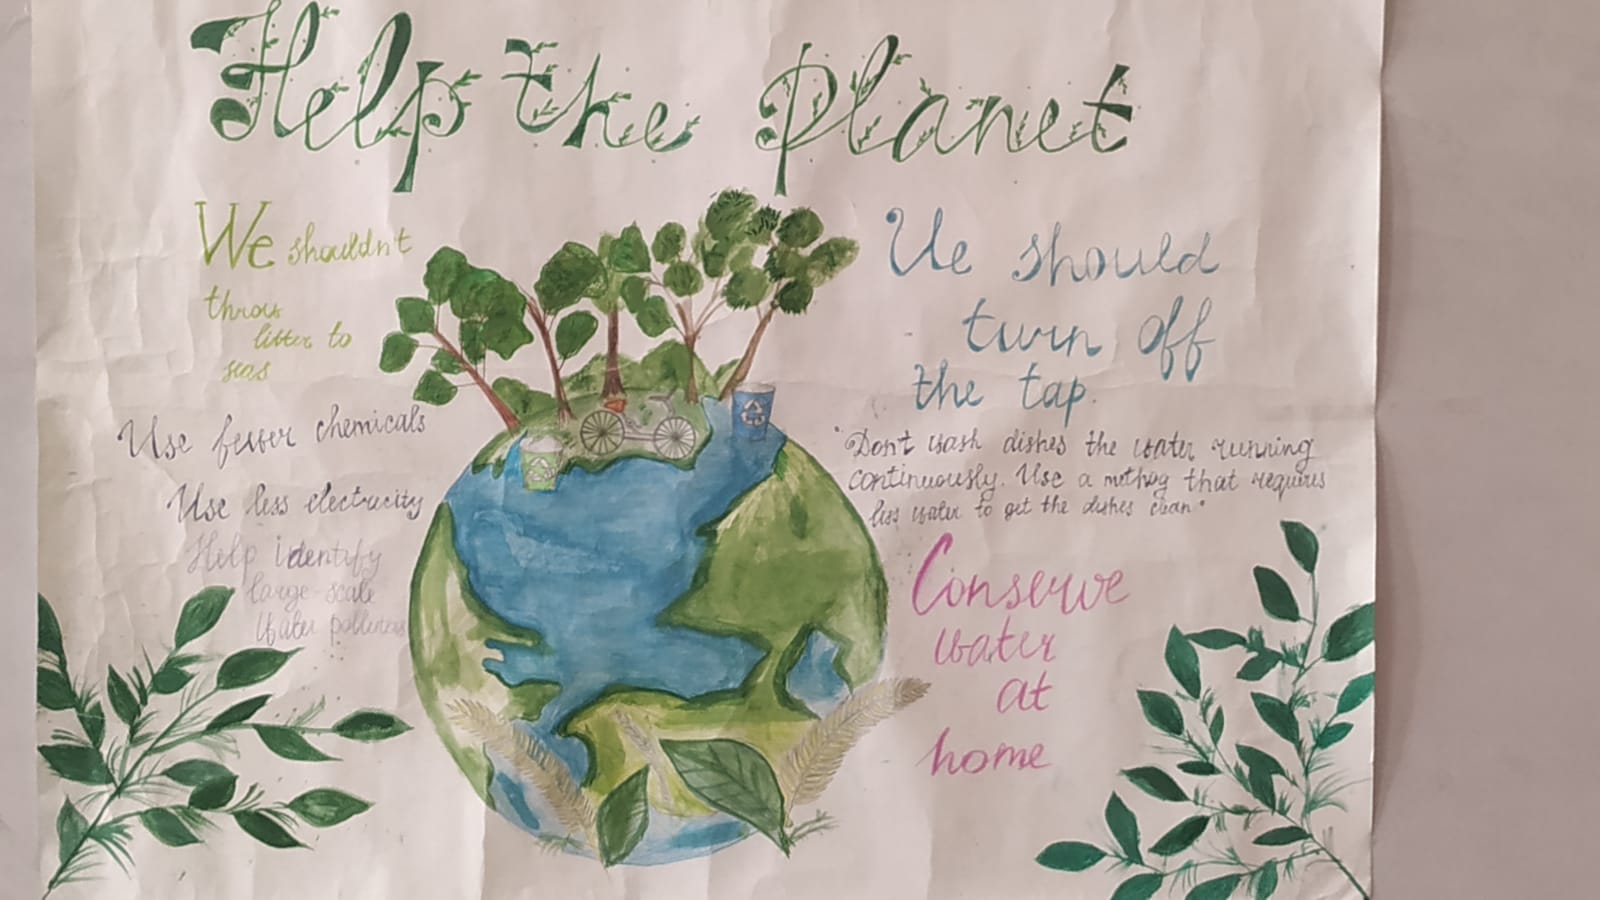 Help the Planet
We shouldn't
throw
litter to
seas
Use fewer chemicals
Use less electrucity
Help identify
large-scale
Water polluters
We should
turn off
the tap.
"Don't wash dishes the water running
continuously. Use a that requires
less water to get the dishes clean"
Conserve
water
at
home